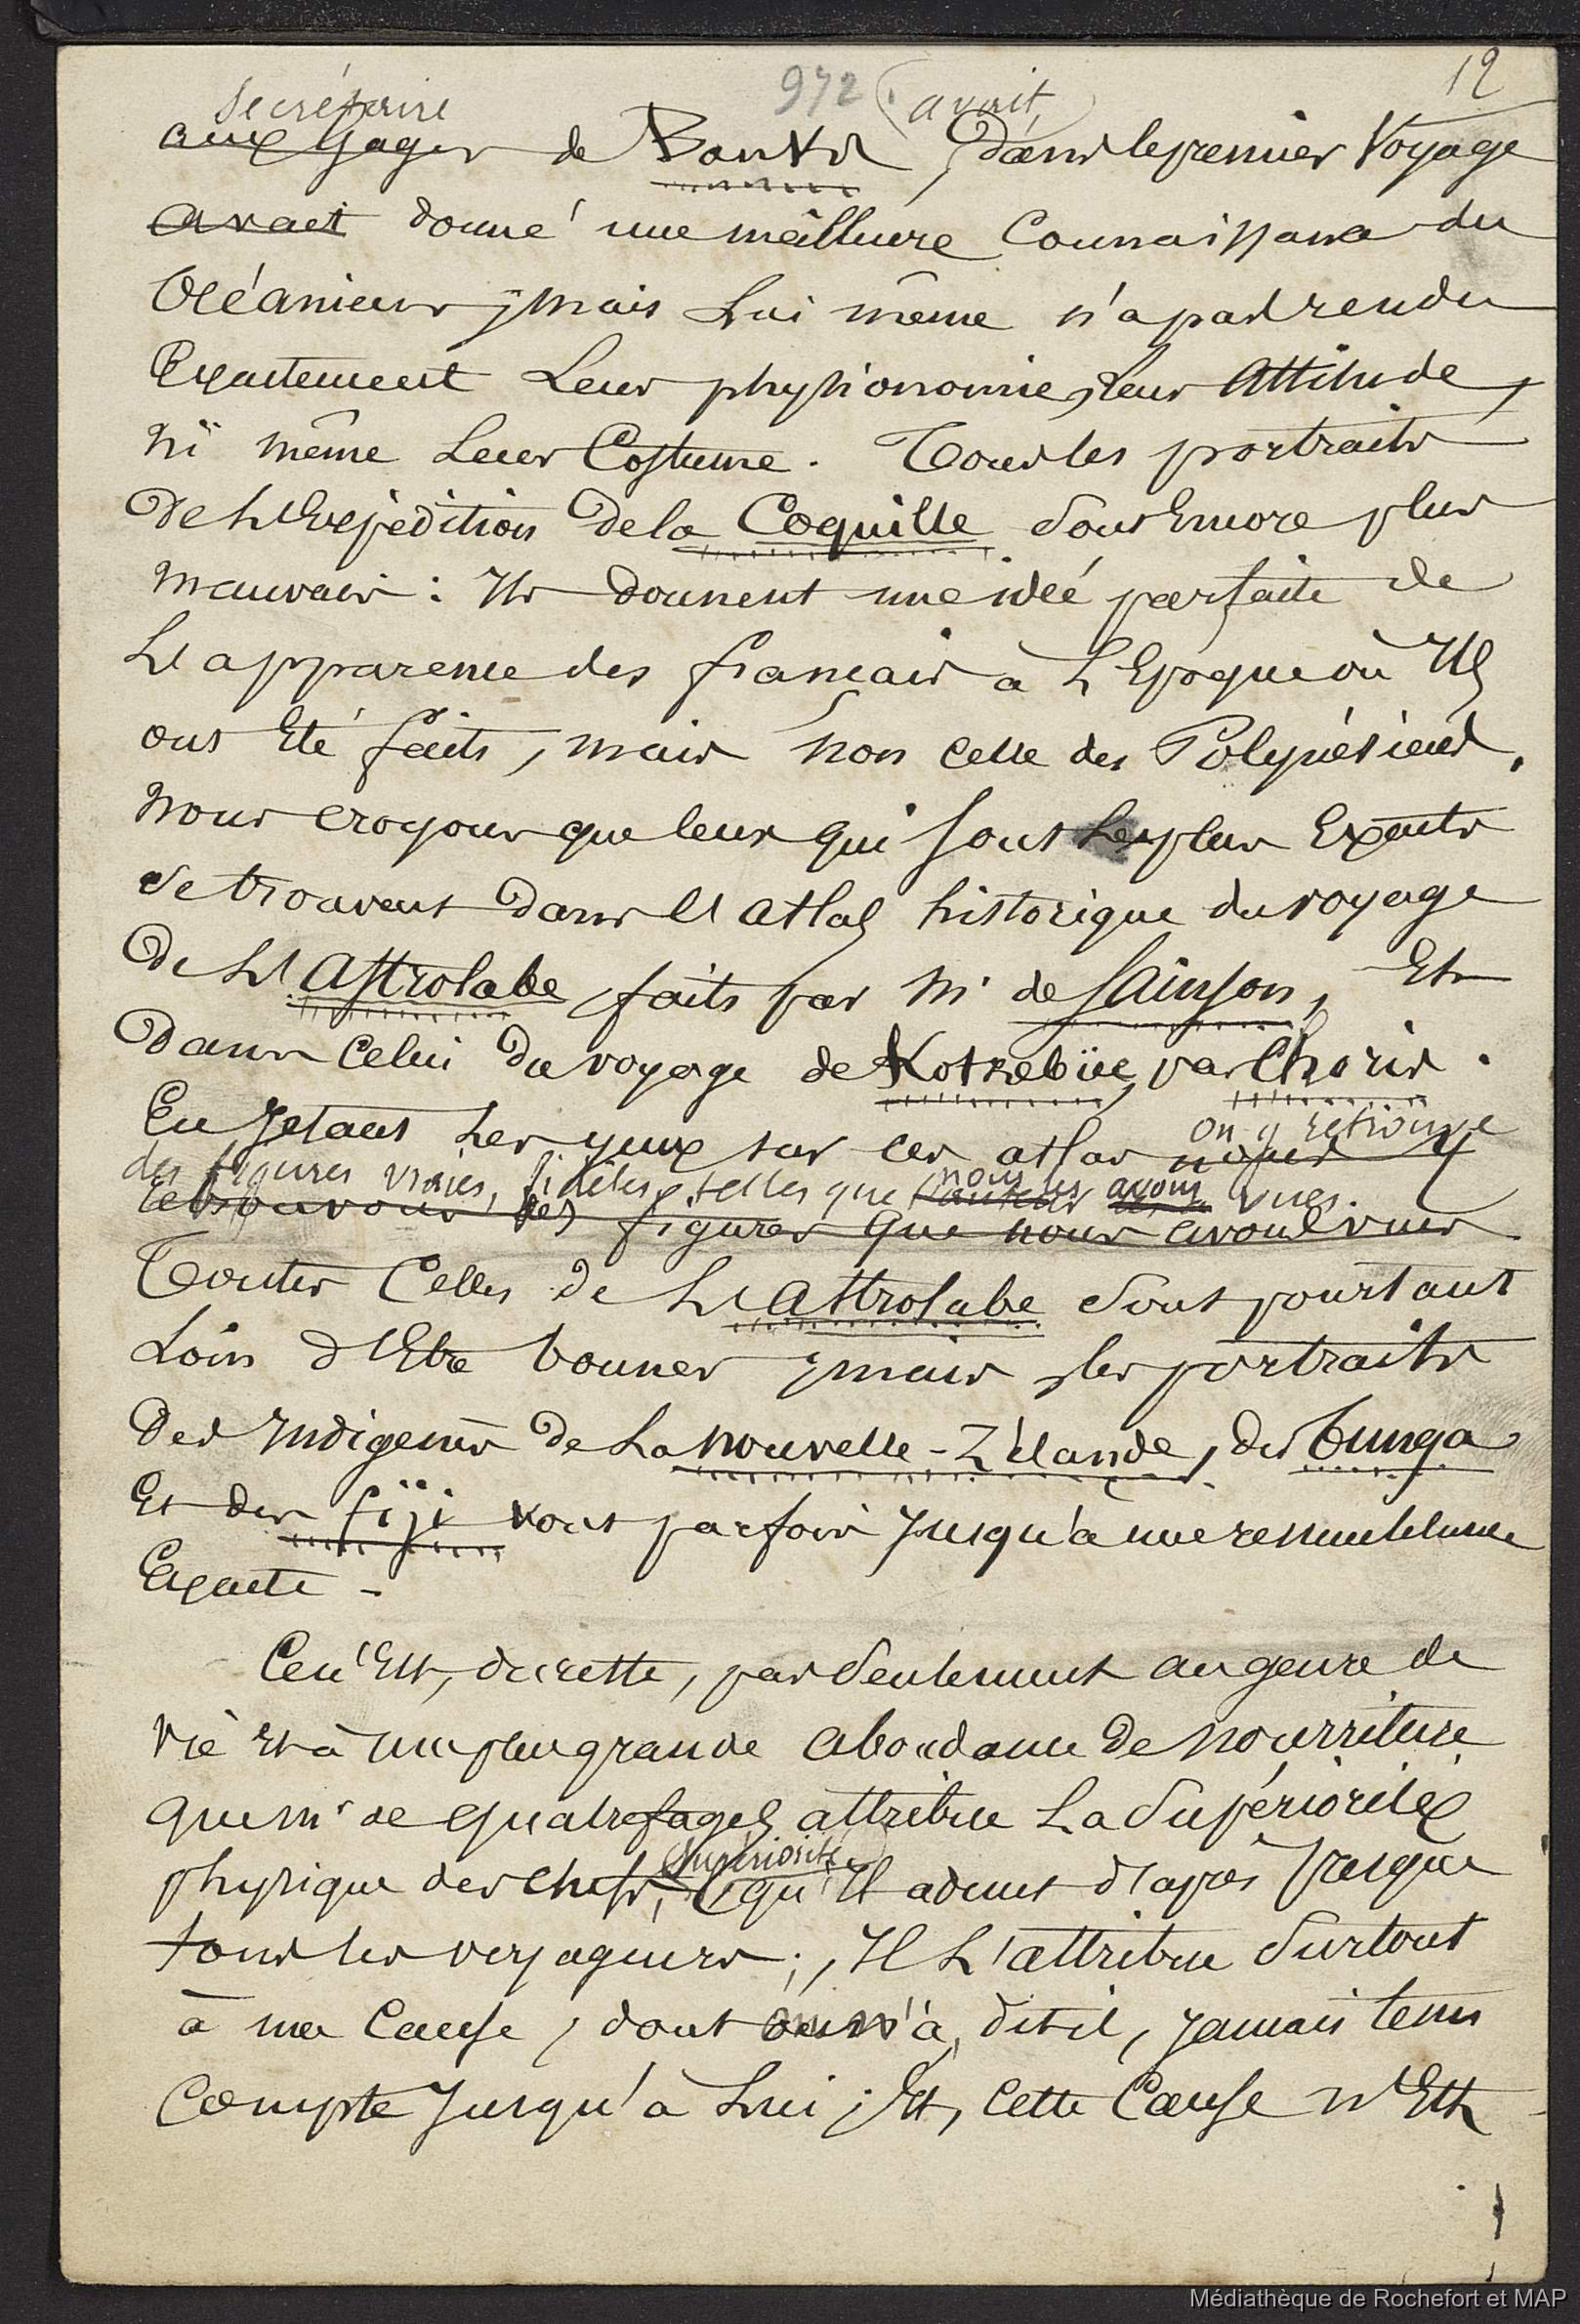 972
12
secrétaire
(avait)
aux gages de Banks, dans le premier voyage
avait donné une meilleure connaissance des
Océaniens ; mais lui même n'a pas rendu
exactement leur physionomie, leur attitude,
ni même leur costume. Tous les portraits
de l'expédition de la Coquille sont encore plus
mauvais : ils donnent une idée parfaite de
l'apparence des français à l'Epoque où Ils
ont été faits, mais non celle des Polynésiens.
Nous croyons que ceux qui sont les plus exacts
se trouvent dans l'atlas historique du voyage
de l'Astrolabe faits par Mr de Sainson, et
dans celui du voyage de Kotzebüe, par Choris.
on y retrouve
En jetant les yeux sur ces atlas nous y
des figures vraies, fidèles, telles que nous les avons vues.
retrouvons les figures que nous avons vues
Toutes celles de l'Astrolabe sont pourtant
loin d'être bonnes ; mais les portraits
des indigènes de la Nouvelle-Zélande, des Tunga
et des fiji vont parfois jusqu'à une ressemblance
exacte -
Ce n'est, du reste, pas seulement au genre de
vie et à une plus grande abondance de nourriture
que Mr de Quatrefages attribue la supériorité
(supériorité)
physique des chefs, qu'il admet d'après presque
tous les voyageurs ; il l'attribue surtout
à une cause, dont on n'a, dit-il, jamais tenu
compte jusqu'à lui ; Et, cette cause n'est
Médiathèque de Rochefort et MAP